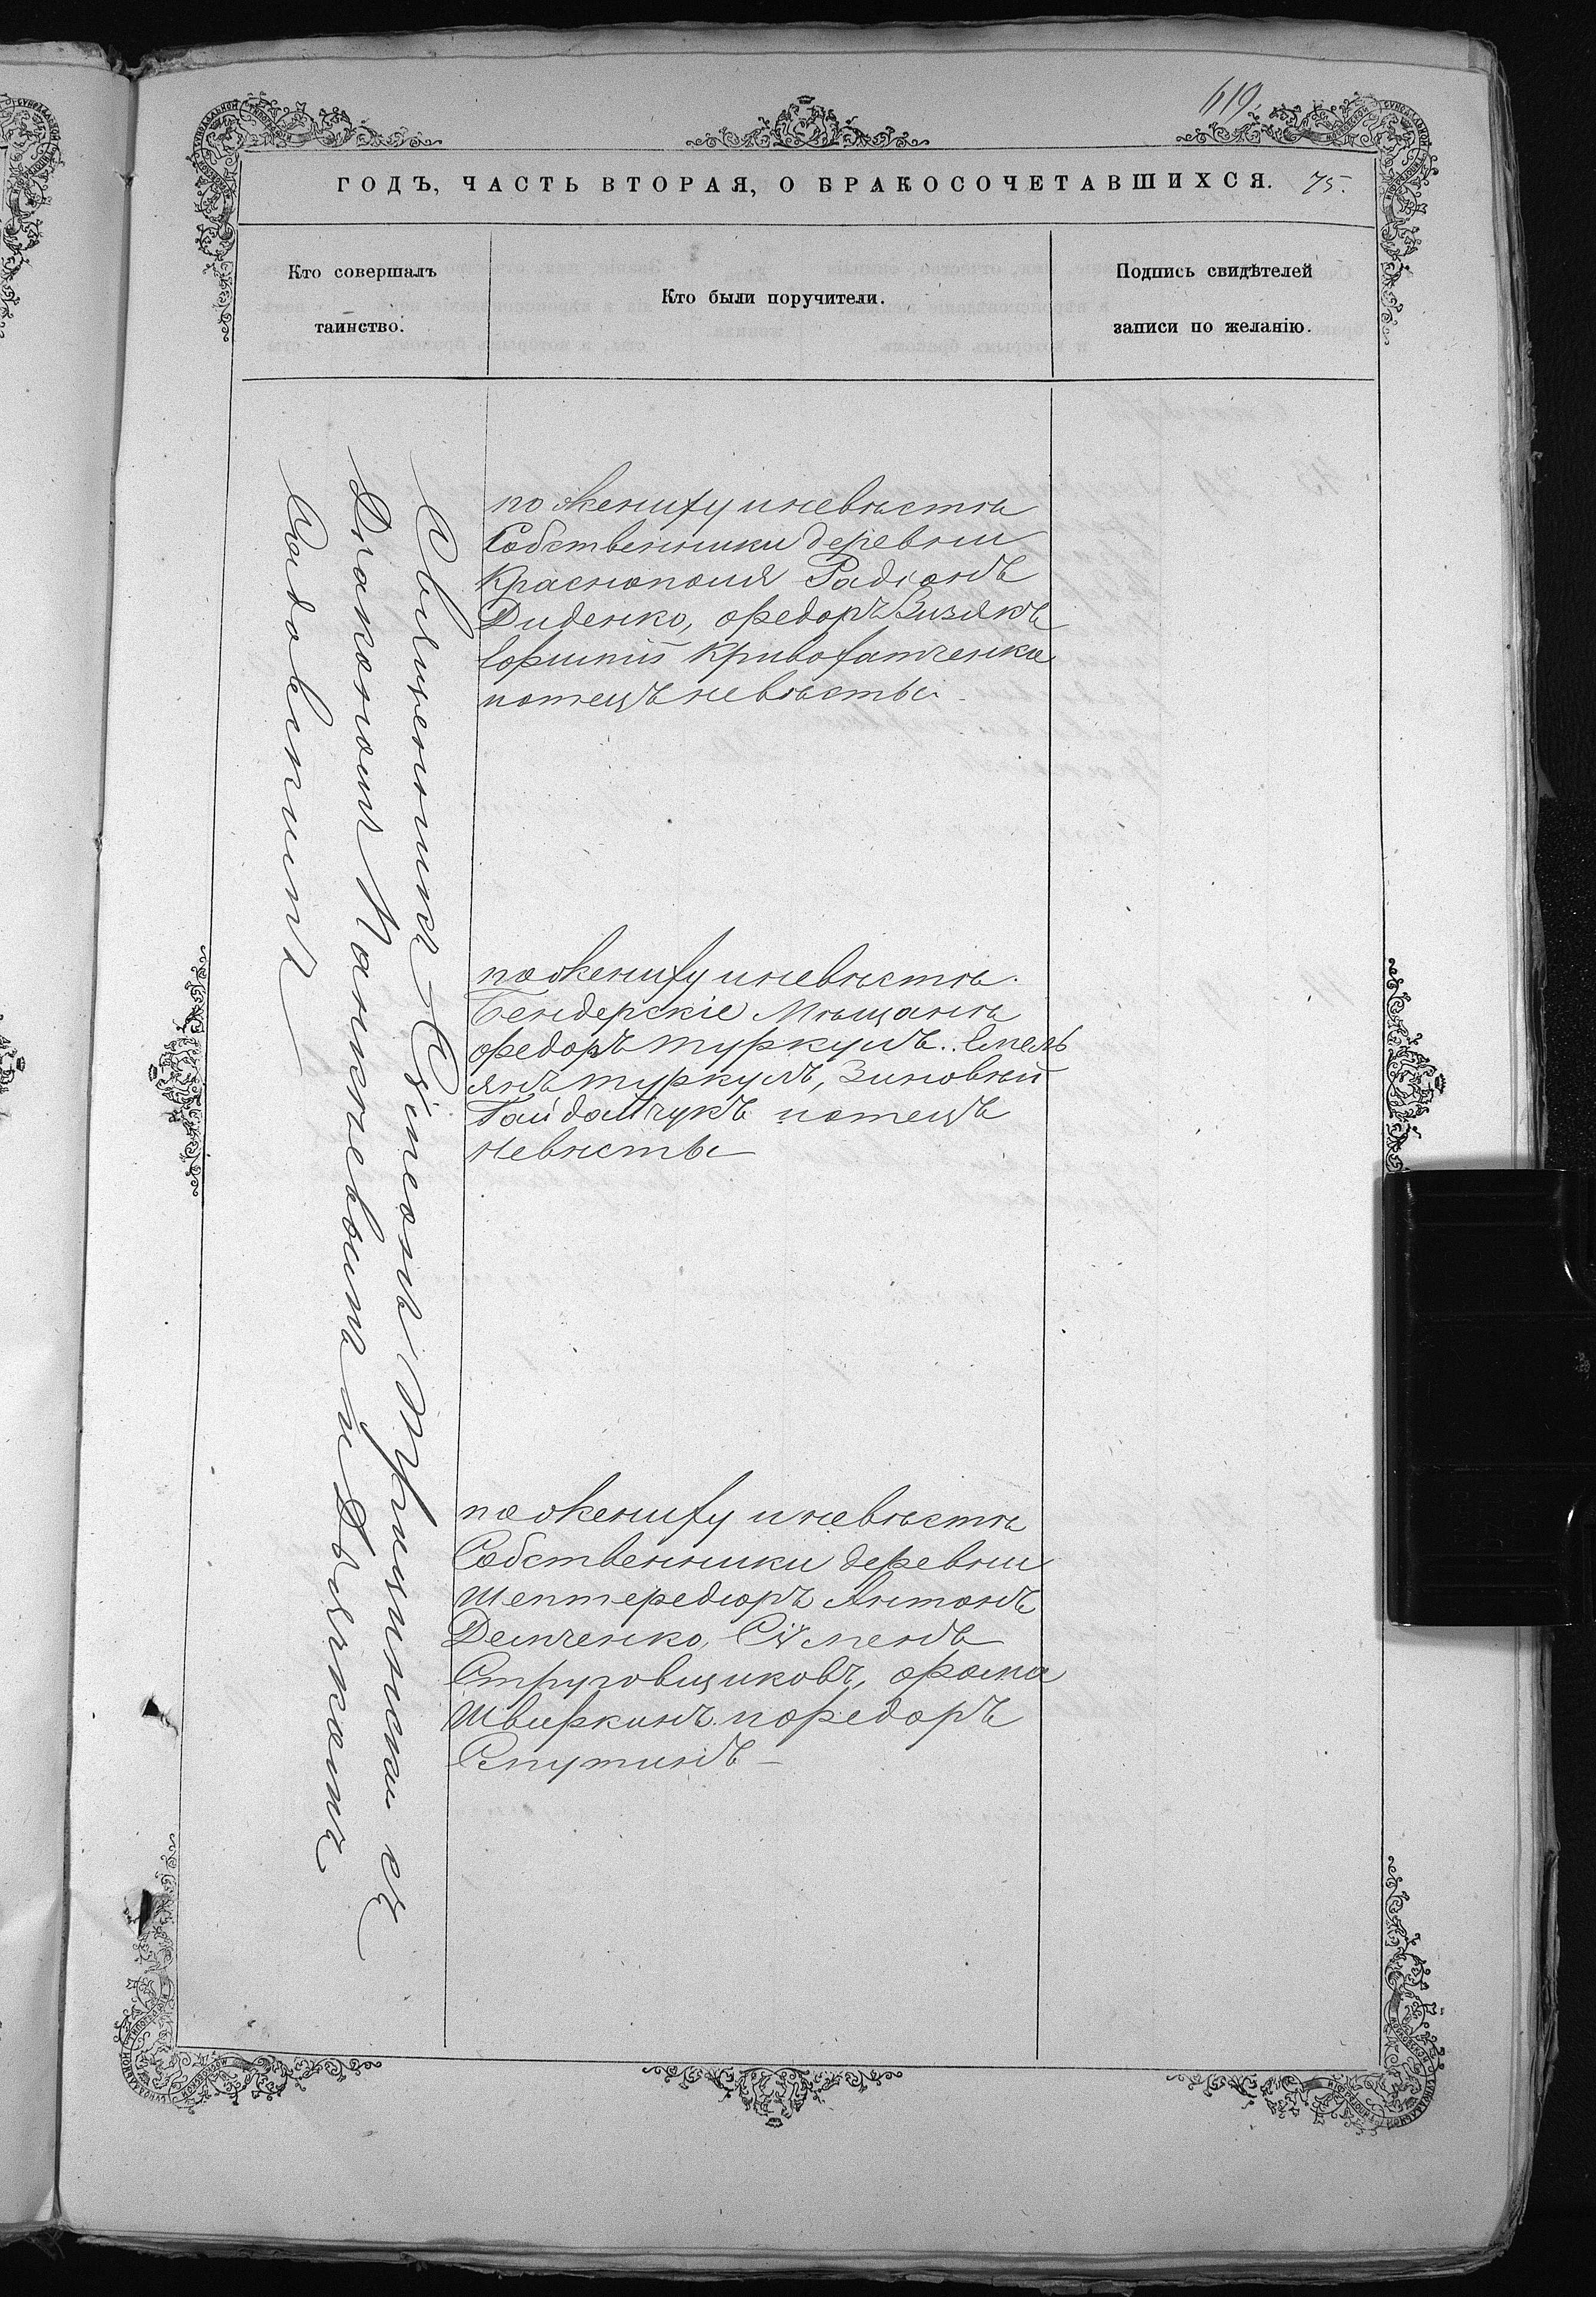 619.
ГОДЪ, ЧАСТЬ ВТОРАЯ, О БРАКОСОЧЕТАВШИХСЯ. 75.
Кто совершалъ
таинство.
Кто были поручители.
Подпись свидѣтелей
записи по желанію.
Священникъ Симеонъ съ
Діакономъ и Дьячкомъ
по жениху и невѣстѣ
Собственники деревни
Краснополя Радіонъ
Диденко, Федоръ Визякъ
Кривохатченко
и отецъ невѣсты
по жениху и невѣстѣ
Бендерскіе Мѣщанѣ
Федоръ Туркулъ. Емель
янъ Туркулъ, Зиновѣй
Гайдайчукъ и отецъ
невѣсты
по жениху и невѣстѣ
Собственники деревни
Шептередюръ Антонъ
Демченко, Сѵменъ
Струговщиковъ, Фома
Швыркинъ и Федоръ
Слутинъ